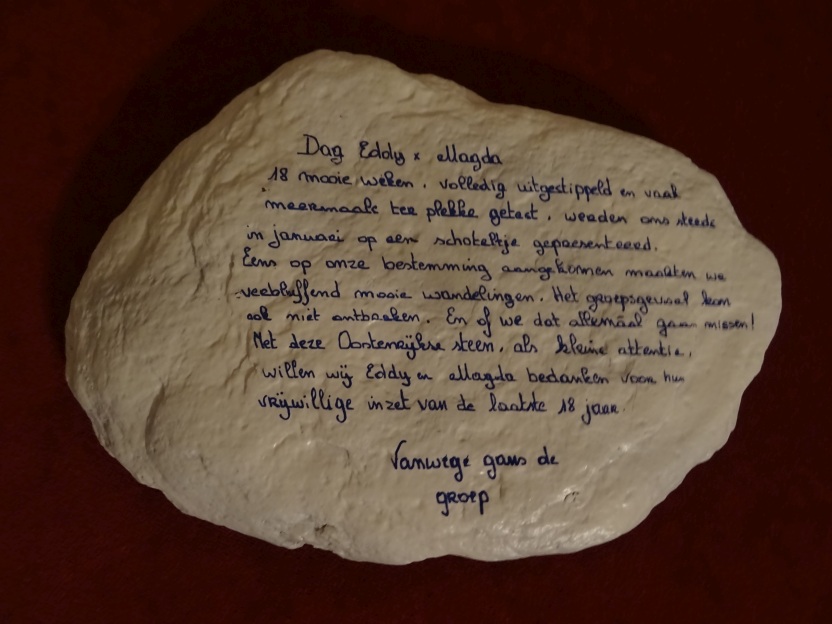 Dag Eddy x Magda
18 mooie weken, volledig uitgestippeld en vaak
meermaals ter plekke getest, werden ons steeds
in januari op een schoteltje gepresenteerd.
Eens op onze bestemming aangekomen maakten we
verbluffend mooie wandelingen. Het groepsgevoel kon
ook niet ontbreken. En of we dat allemaal gaan missen!
Met deze Oostenrijkse steen, als kleine attentie,
willen wij Eddy en Magda bedanken voor hun
vrijwillige inzet van de laatste 18 jaar.
Vanwege gans de
groep